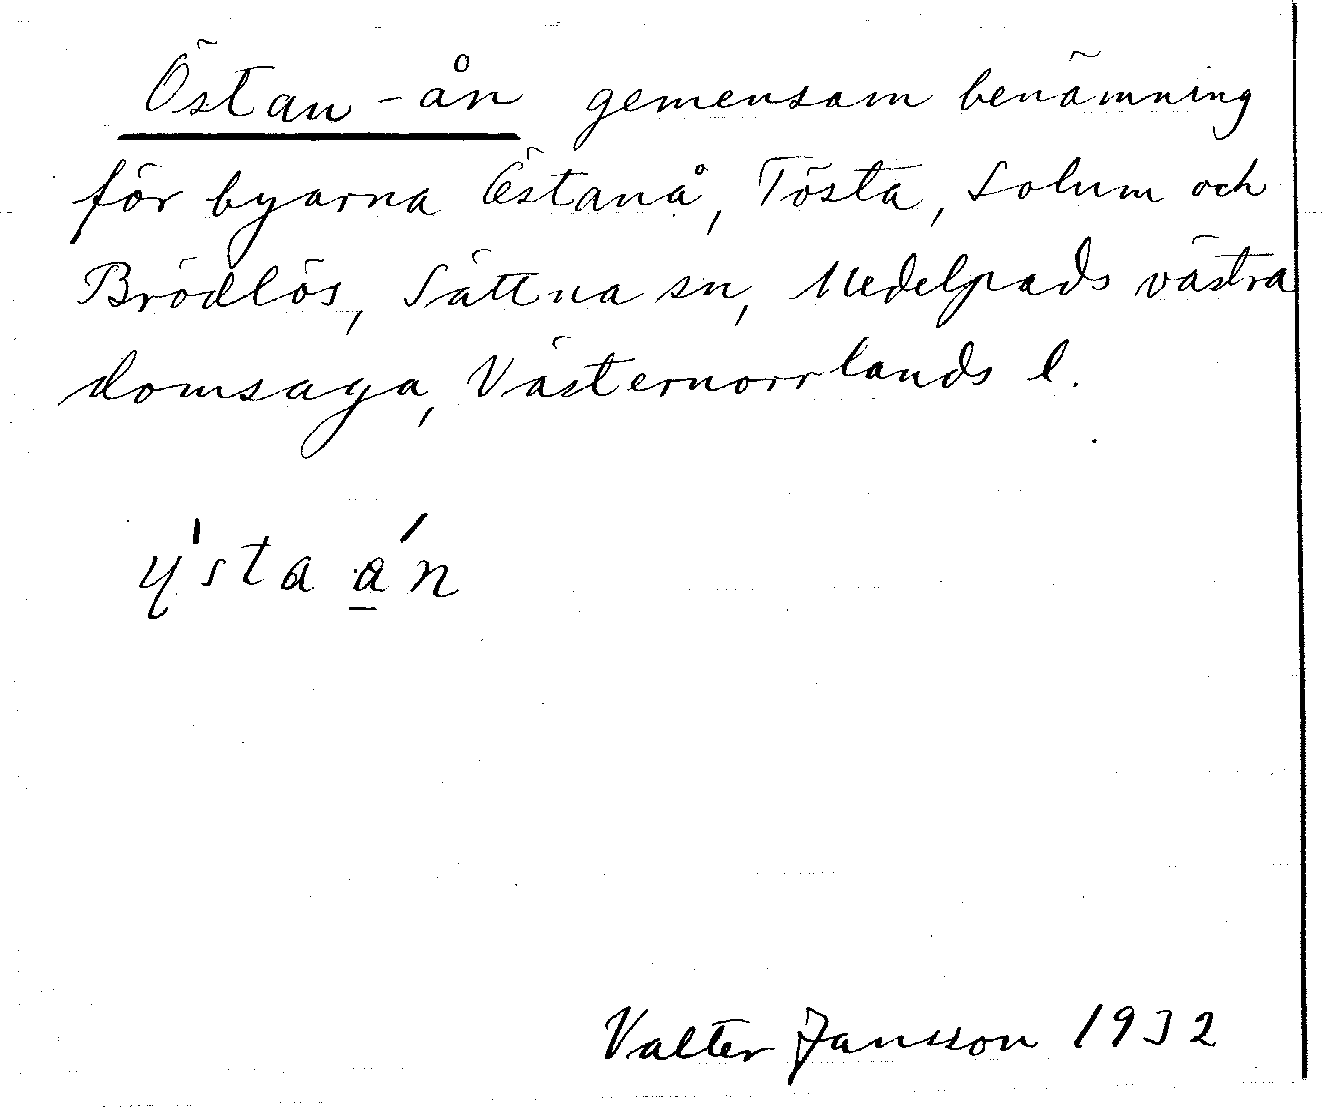 Östan-ån gemensam benämning
för byarna Östanå, Tösta, Solum och
Brödlös, Sättna sn, Medelpads västra
domsaga, Västernorrlands l.
y'sta a̲´n
Valter Jansson 1932